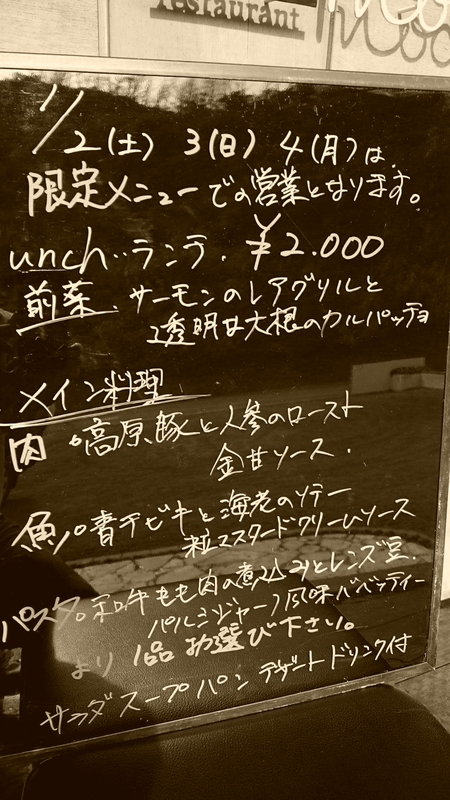 restaurant
1/2(土) 3(日) 4(月)は、
限定メニューでの営業となります。
unch‥ランチ. ¥2.000
前菜. サーモンのレアグリルと
透明な大根のカルパッチョ
メイン料理
肉 。高原豚と人参のロースト
金柑ソース.
魚。青チビキと海老のソテー
粒マスタードクリームソース
パスタ。和牛もも肉の煮込みとレンズ豆.
パルミジャーノ風味 パペッティー
より 1品お選び下さい。
サラダ スープ パン デザート ドリンク付